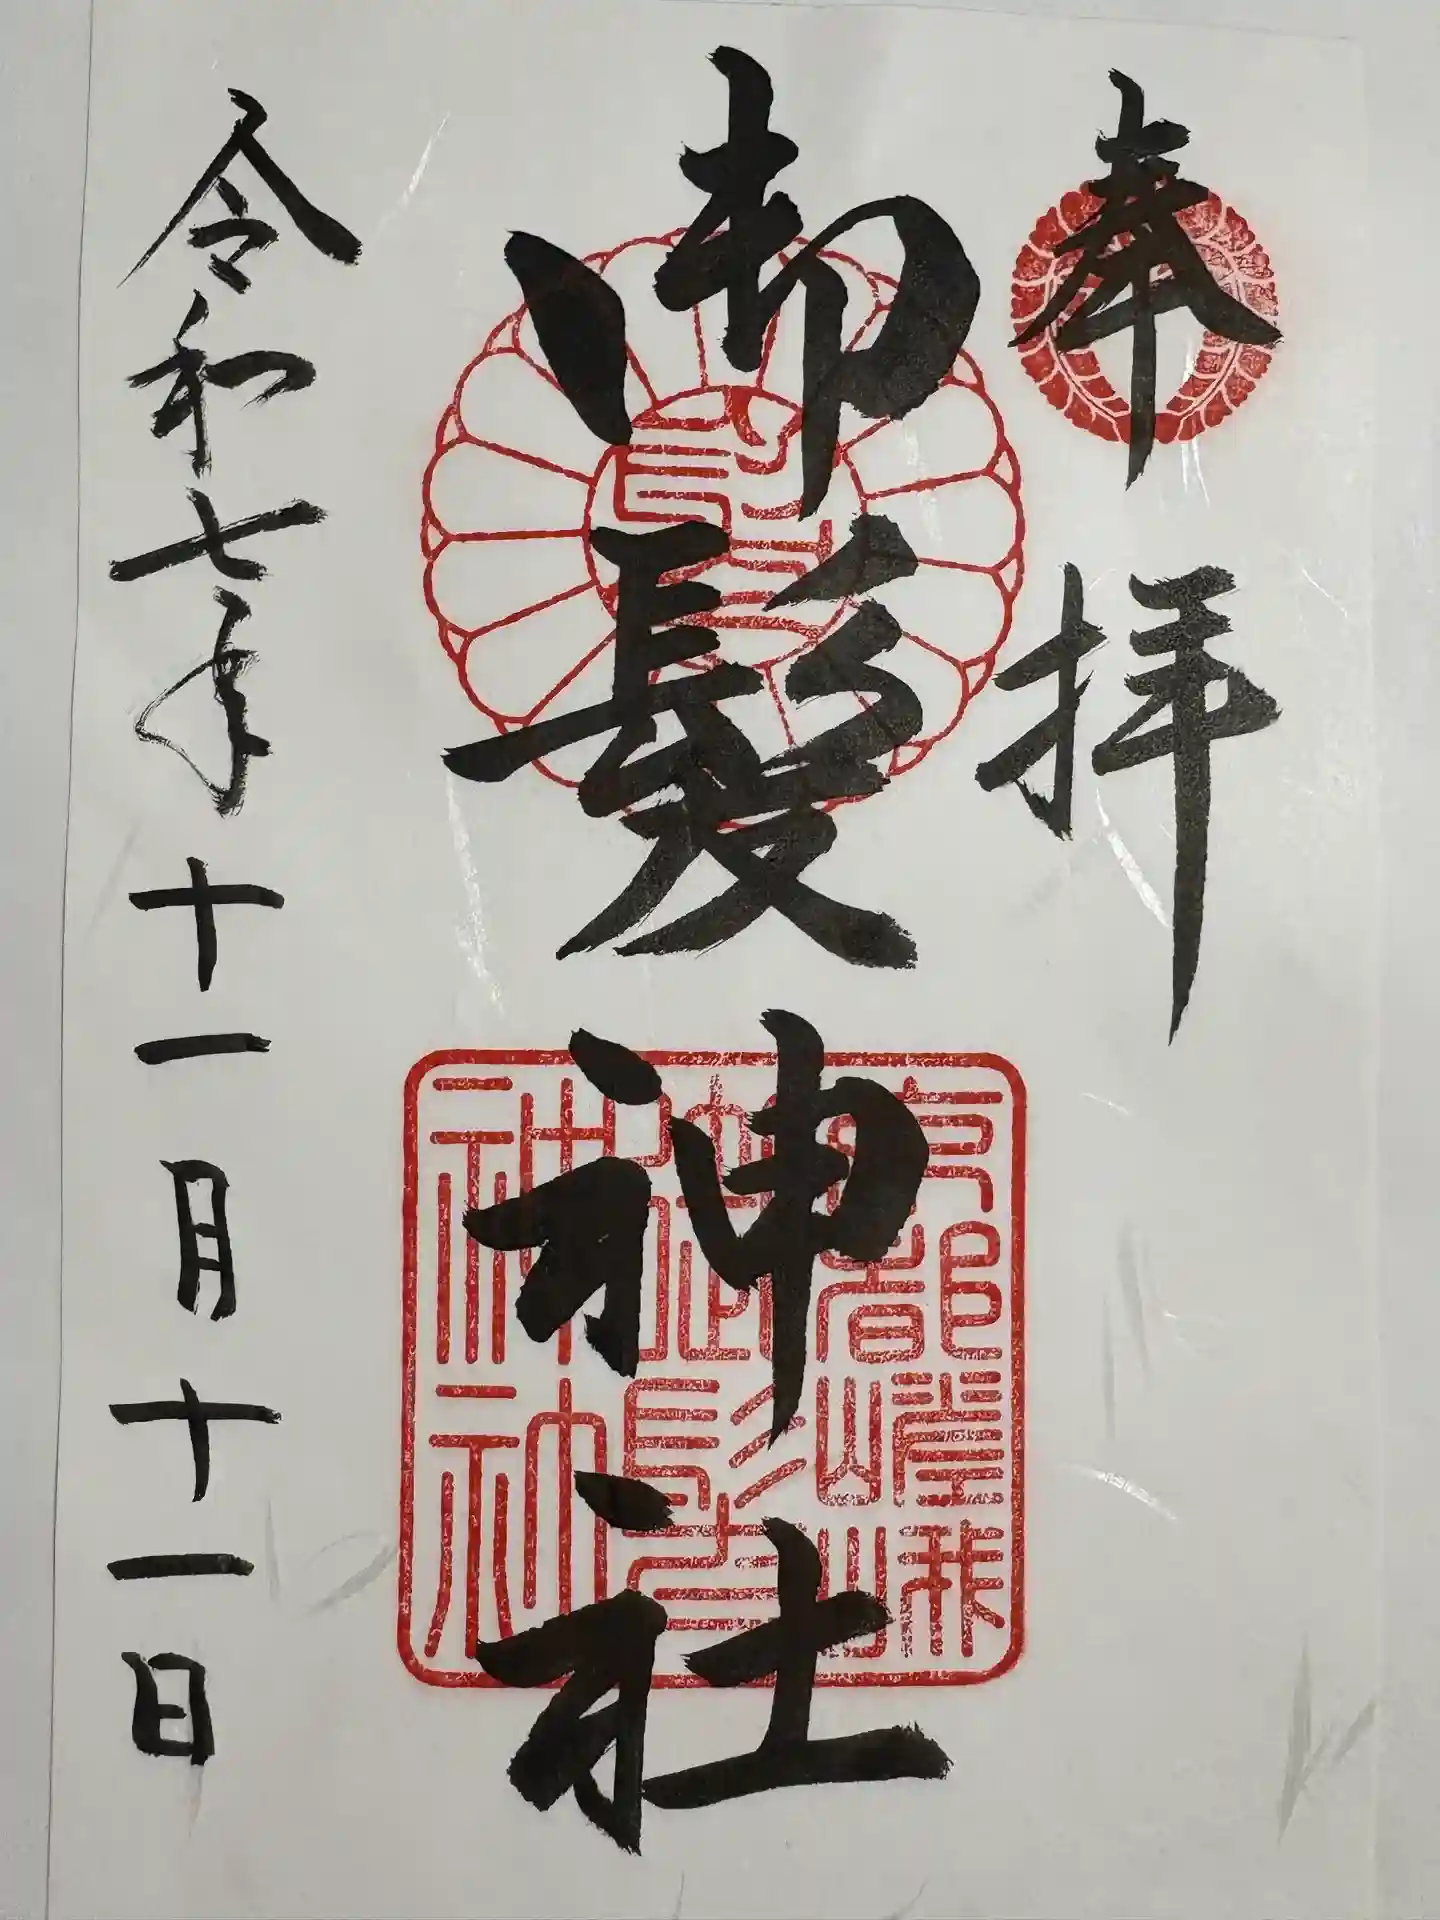 奉拝
御髪神社
京都嵯峨
御髪
神社
令和七年十一月十一日